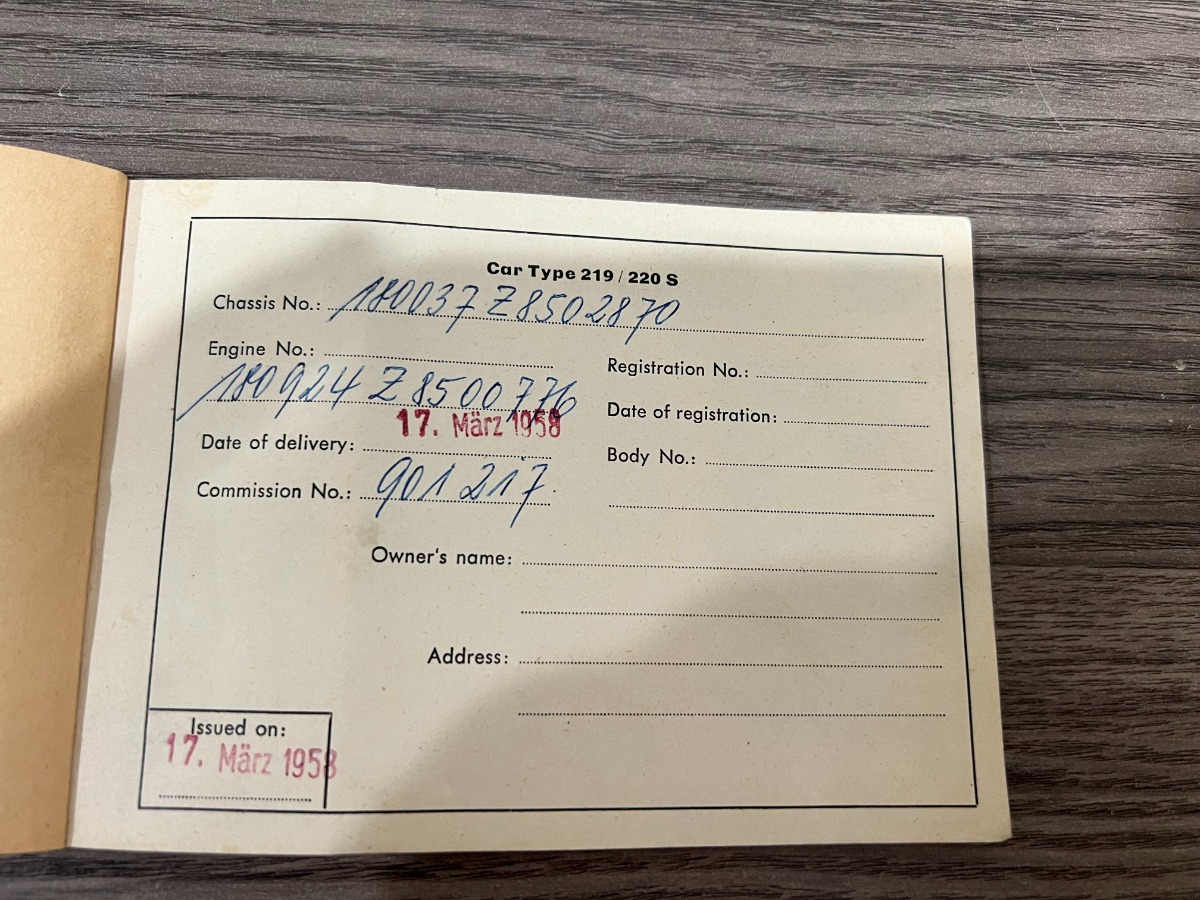 Car Type 219 / 220 S
Chassis No.: 180037 Z 8502870
Engine No.:
180 924 Z 8500776
Registration No.:
17. März 1958
Date of registration:
Date of delivery:
Body No.:
Commission No.: 901 217
Owner's name:
Address:
Issued on:
17. März 1958